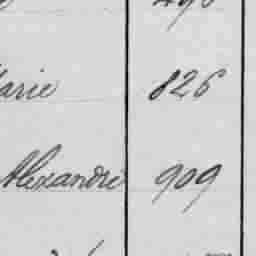 arie 826
Alexandre 909